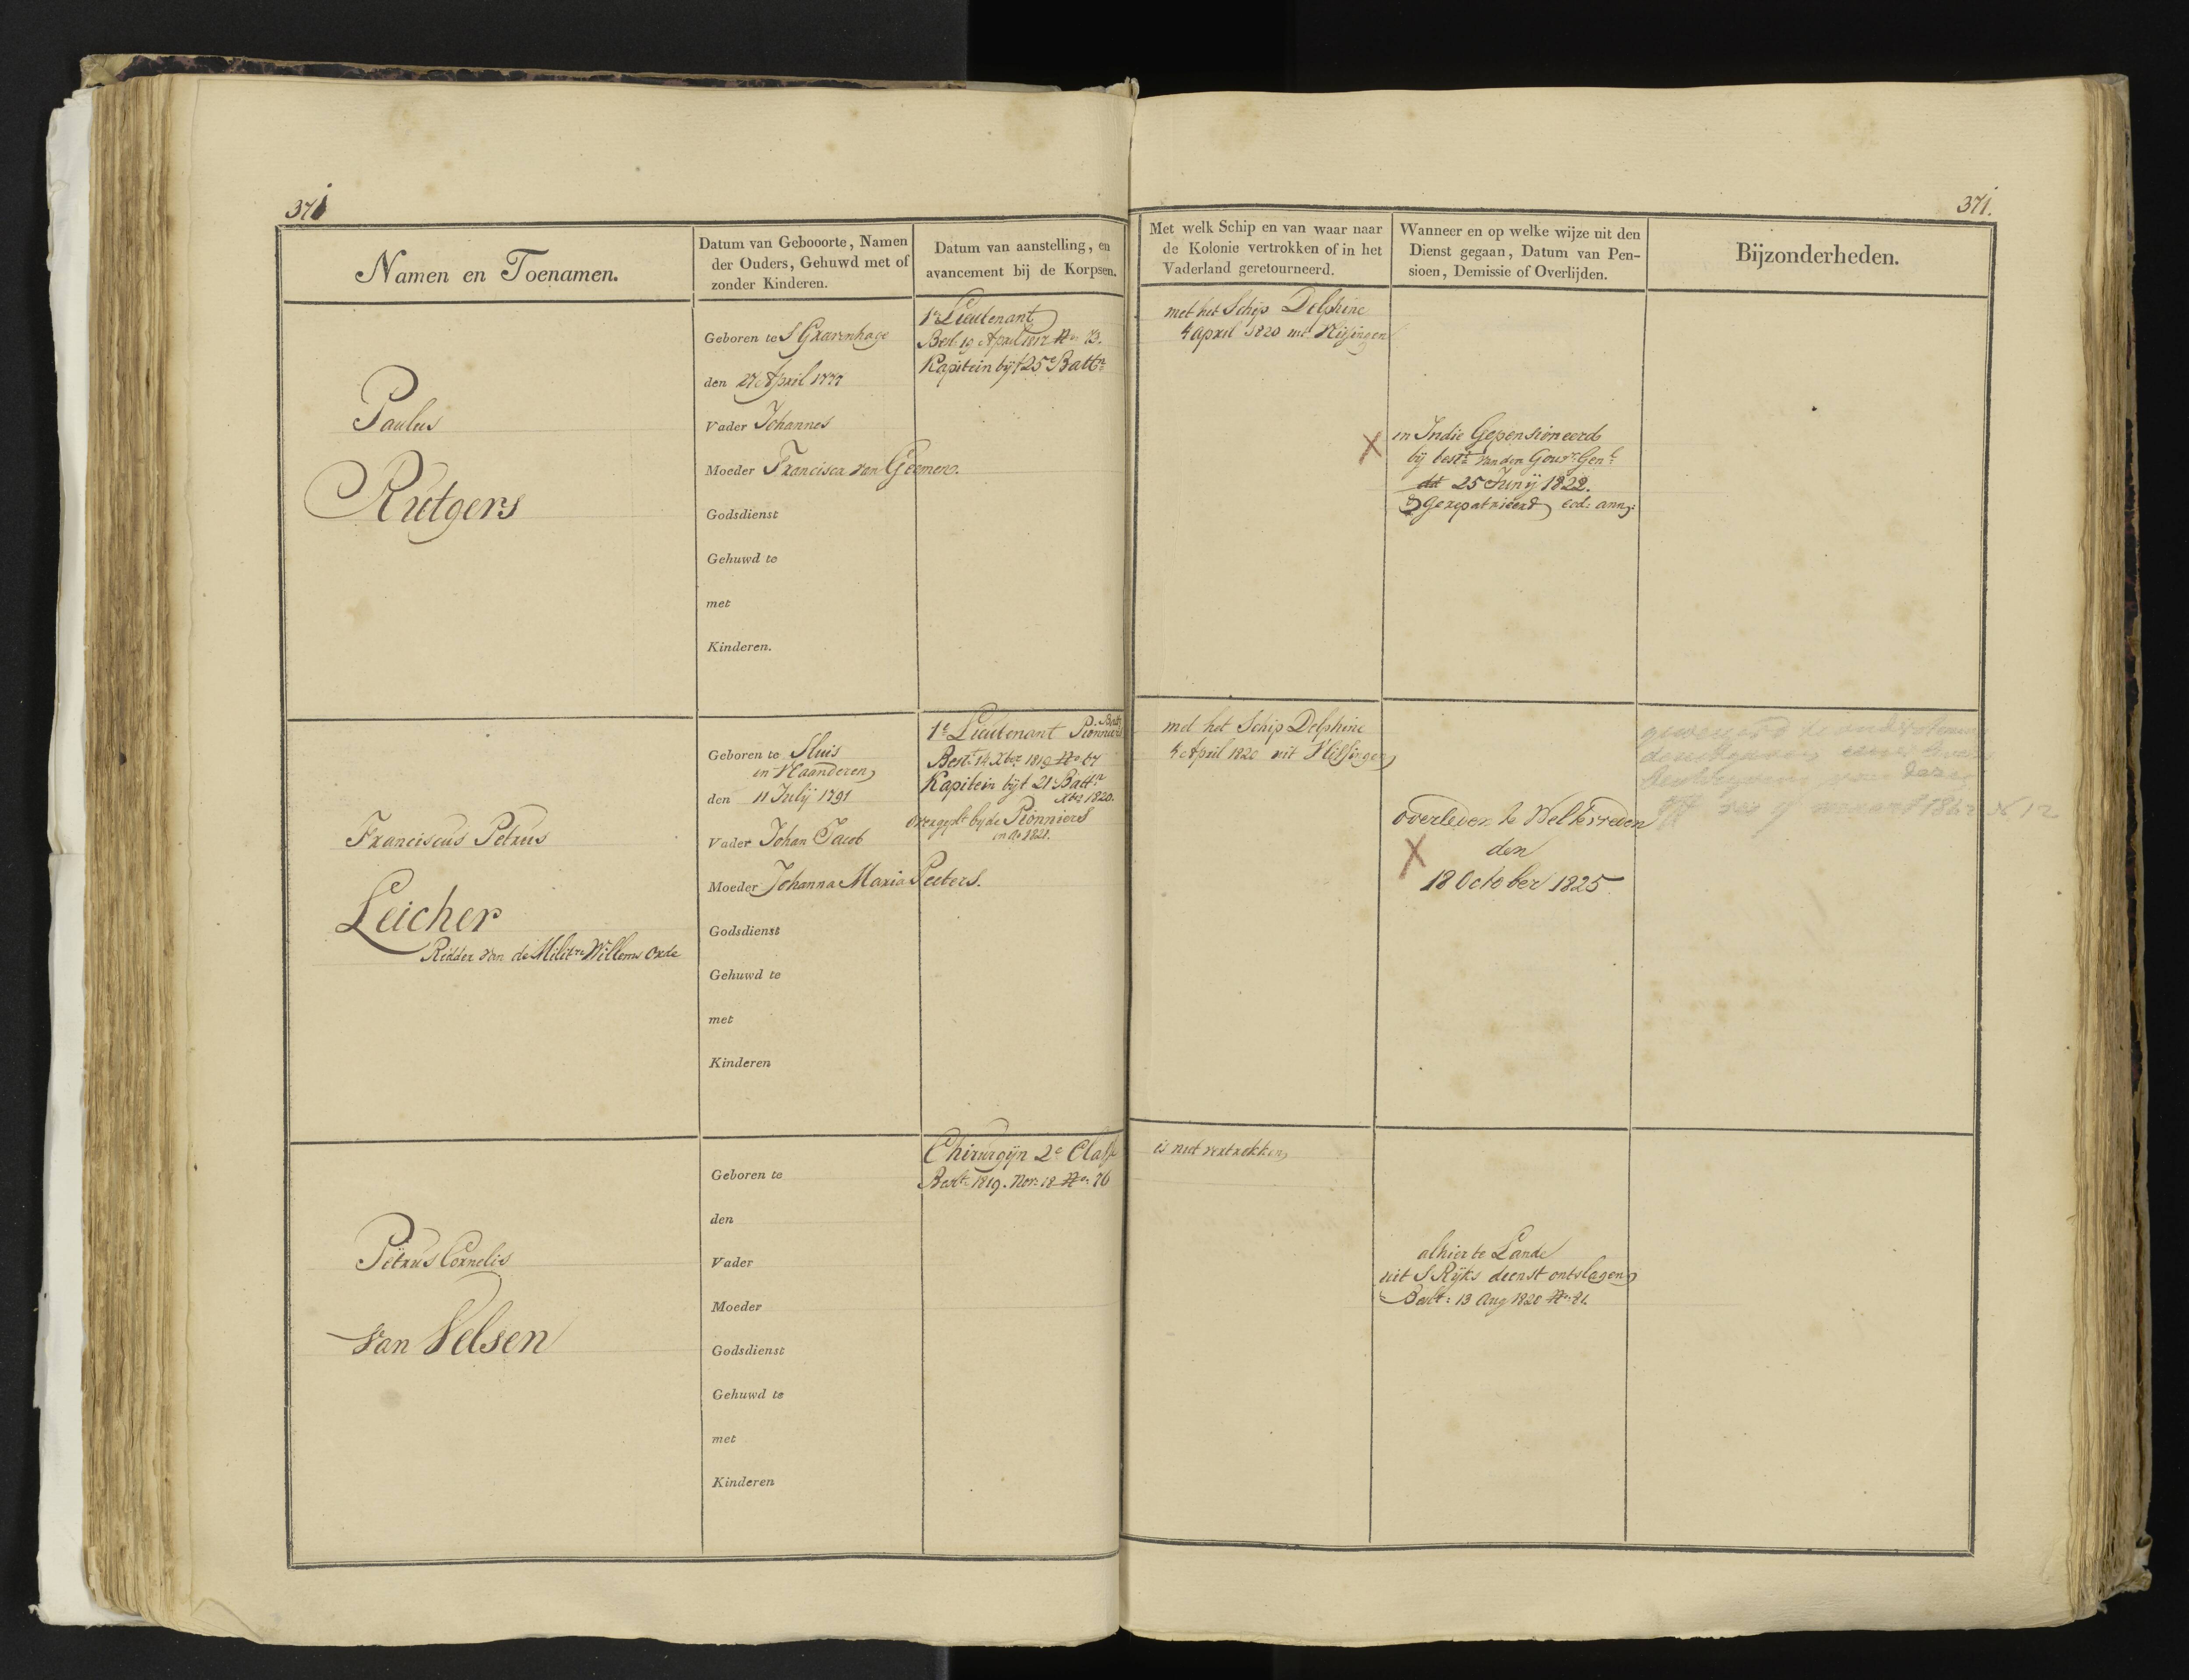 371
371.
Namen en Toenamen.
Datum van Gebooorte, Namen
der Ouders, Gehuwd met of
zonder Kinderen.
Datum van aanstelling, en
avancement bij de Korpsen.
Met welk Schip en van waar naar
de Kolonie vertrokken of in het
Vaderland geretourneerd.
Wanneer en op welke wijze uit den
Dienst gegaan, Datum van Pen-
sioen, Demissie of Overlijden.
Bijzonderheden.
Paulus
Rutgers
Geboren te S Gravenhage
den 27 April 1777
Vader Johannes
Moeder Francisca van Geemen.
Godsdienst
Gehuwd te
met
Kinderen.
1e Lieutenant
Best. 19 April 1817 No. 13.
Kapitein bij t 25e Battn
met het Schip Delphine
4 April 1820 uit Vlissingen
X
in Indie Gepensioneerd
bij beslt van den Gouvr Genl
dd 25 Junij 1822.
Gerepatrieerd eod: ann:
Franciscus Petrus
Leicher
Ridder van de Militre Willems Orde
Geboren te Sluis
in Vlaanderen
den 11 Julij 1791
Vader Johan Jacob
Moeder Johanna Maria Peeters.
Godsdienst
Gehuwd te
met
Kinderen
1e Lieutenant Pionniers
Beslt 14 Xber 1819 No 67
Kapitein bijt 21e Battn
Xber 1820.
overgept bij de Pionniers
in Ao 1821.
met het Schip Delphine
4 April 1820 uit Vlissingen
X
overleden te Weltevreden
den
18 October 1825.
maart 1862 N 12
Petrus Cornelis
Van Velsen
Geboren te
den
Vader
Moeder
Godsdienst
Gehuwd te
met
Kinderen
Chirurgijn 2e Classe
Beslt 1819. Nov: 18 No. 76
is niet vertrokken
alhier te Lande
uit S Rijks dienst ontslagen
Beslt: 13 Aug 1820 No: 81.